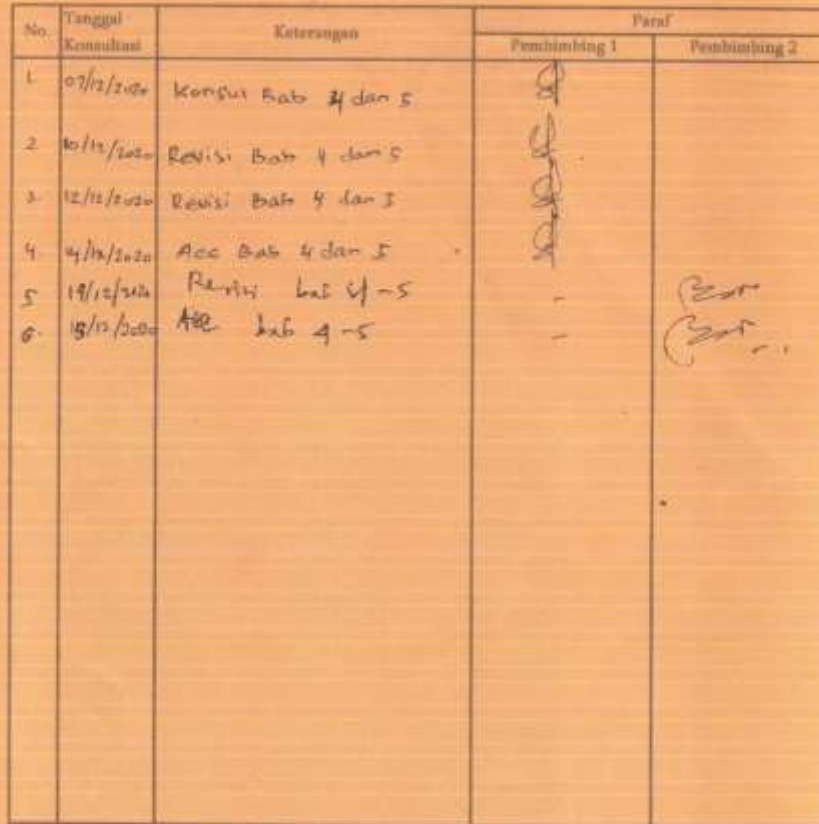 No. Tanggal Konsultasi Keterangan Paraf
Pembimbing 1 Pembimbing 2
1. 07/12/2020 Konsul Bab 4 dan 5
2 10/12/2020 Revisi Bab 4 dan 5
3. 12/12/2020 Revisi Bab 4 dan 5
4 14/12/2020 Acc Bab 4 dan 5
5 /12/2020 Revisi bab 4-5 -
6. 15/12/2020 Acc bab 4-5 -